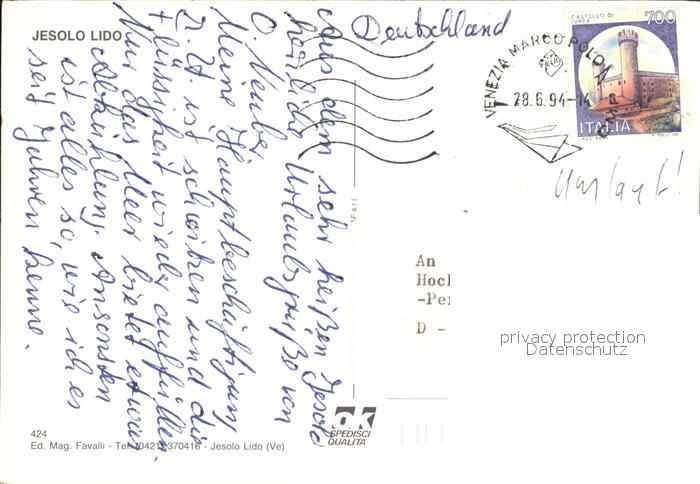 JESOLO LIDO
Deutschland
CASTELLO DI
IVREA
700
ITALIA
VENEZIA MARCO POLO
28.6.94-14
Urlaub!
Aus dem sehr heißen Jesolo
herzliche Urlaubsgrüße von
O. Neuber
Meine Hauptbeschäftigung
z. Zt. ist schwitzen und die
Flüssigkeit wieder auffüllen.
Nur das Meer bietet etwas
Abkühlung. Ansonsten
ist alles so, wie ich es
seit Jahren kenne.
An
Hoch
-Per
D -
privacy protection
Datenschutz
ok
SPEDISCI
QUALITA'
424
Ed. Mag. Favalli - Tel. (0421) 370416 - Jesolo Lido (Ve)